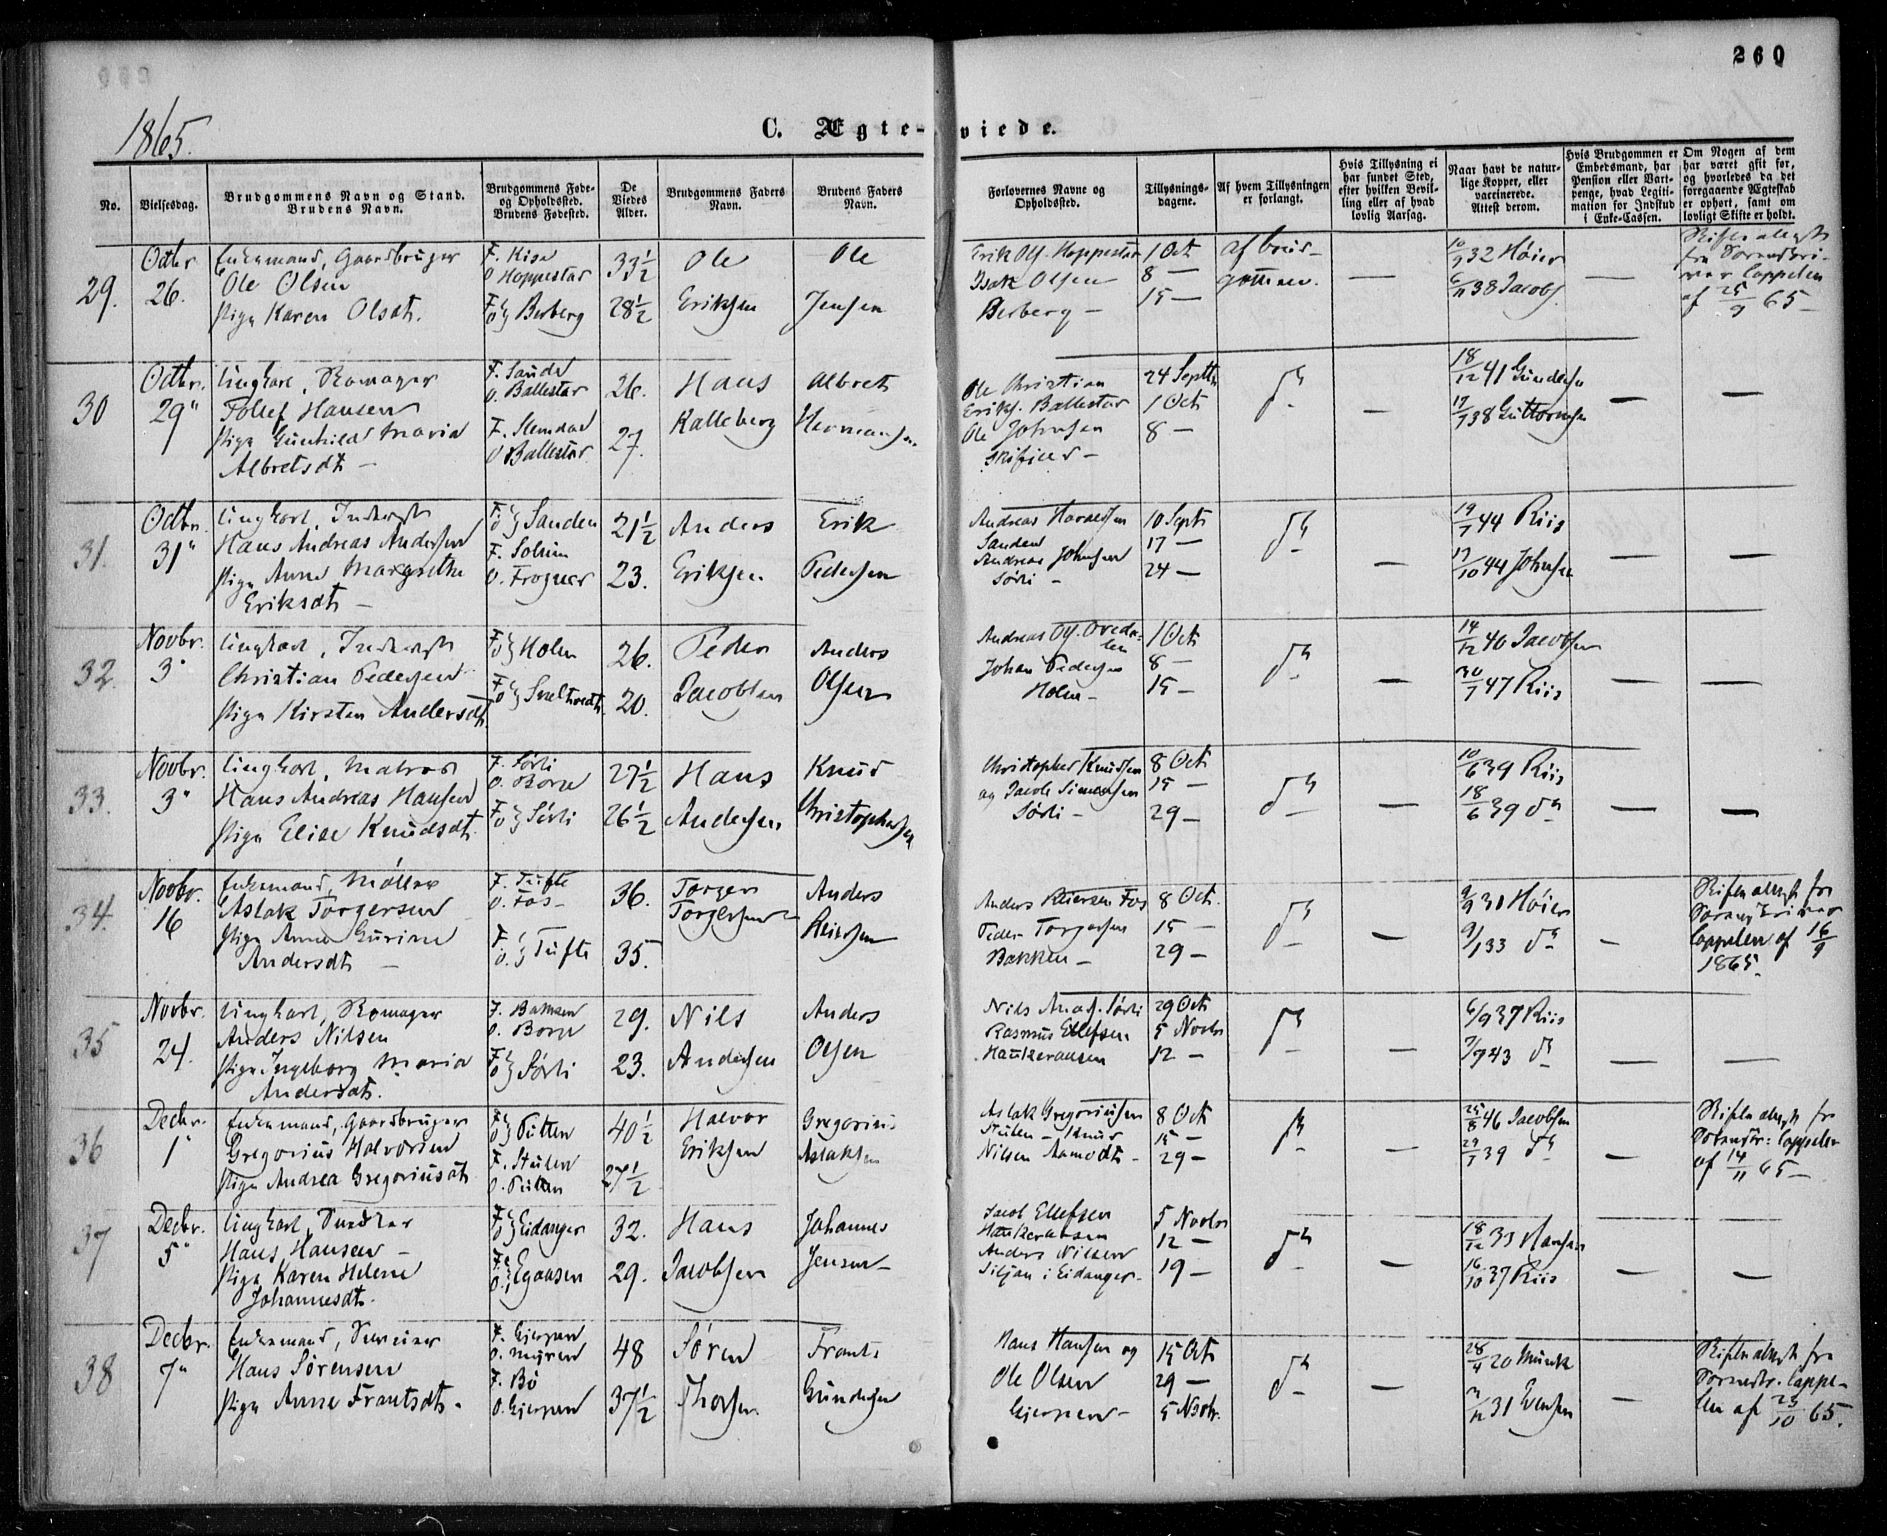 260
1865.
C. Ægte-viede.
No.
Vielsesdag.
Brudgommens Navn og Stand.
Brudens Navn.
Brudgommens Føde-
og Opholdssted.
Brudens Fødested.
De
Viedes
Alder.
Brudgommens Faders
Navn.
Brudens Faders
Navn.
Forlovernes Navne og
Opholdssted.
Tillysnings-
dagene.
Af hvem Tillysningen
er forlangt.
Hvis Tillysning ei
har fundet Sted,
efter hvilken Bevil-
ling eller af hvad
lovlig Aarsag.
Naar havt de natur-
lige Kopper, eller
vaccinerede.
Attest derom.
Hvis Brudgommen er
Embedsmand, har
Pension eller Vart-
penge, hvad Legiti-
mation for Indskud
i Enke-Cassen.
Om Nogen af dem
har været gift før,
og hvorledes da det
foregaaende Ægteskab
er ophørt, samt om
lovligt Skifte er holdt.
29.
Octbr
26.
Enkemand, Gaardbruger
Ole Olsen
Pige Karen Olsdt.
F. Kise
O Hoppestad
F. O. Berberg
33½
28½
Ole
Eriksen
Ole
Jensen
Erik Ols. Hoppestad
Isak Olsen
Berberg –
1 Oct
8 –
15 –
af brud-
gommen.
–
10/9 32 Høier
6/11 38 Jacobs.
–
Skifteattest
fra Sorenskri-
ver Cappelen
af 25/9 65 –
30
Octbr.
29"
Ungkarl,
Tollef Hansen
Pige Gunhild Maria
Albretsdt –
F. Saude
O. Ballestad
F. Slemdal
O Ballestad
26.
27.
Hans
Kalleberg
Albret
Hermansen
Ole Christian
Eriks. Ballestad
Ole Johnsen
24 Septbr
1 Oct
8 –
do
–
18/12 41 Gundersen
17/7 38 Guttormsen
–
–
31.
Octbr.
31"
Ungkarl, Inderst
Hans Andreas Andersen
Pige Anne Margrethe
Eriksdt –
F. O. Sanden
F. Solum
O. Frogner
21½
23.
Anders
Eriksen
Erik
Pedersen
Andreas
Sanden
Andreas Johnsen
Sørli –
10 Septr
17 –
24 –
do
–
19/7 44 Riis
17/10 44 Johnsen
–
–
32.
Novbr.
3"
Ungkarl, Inderst
Christian Pedersen
Pige Kirsten Andersdt
F. O. Holm
F. O.
26.
20.
Peder
Jacobsen
Anders
Olsen
Andreas Ols.
Johan Pedersen
Holm –
1 Oct
8 –
15 –
do
–
14/12 40 Jacobsen
30/7 47 Riis
–
–
33.
Novbr.
3"
Ungkarl, Matros
Hans Andreas Hansen
Pige Elise Knudsdt.
F. Sørli
O. Borge
F. O. Sørli
27½
26½
Hans
Andersen
Knud
Christophersen
Christopher Knudsen
og Jacob Simonsen
Sørli –
8 Oct
15 –
29 –
do
–
10/6 39 Riis
18/6 39 do
–
–
34.
Novbr.
16
Enkemand, Møller
Aslak Torgersen
Pige Anne Gurine
Andersdt –
F. Tufte
O. Fos –
F. O. Tufte
36.
35.
Torger
Torgersen
Anders
Reiersen
Anders Reiersen Fos
Peder Torgersen
Bakken –
8 Oct.
15 –
29 –
do
–
9/9 31 Høier
9/1 33 do
–
Skifteattest fra
Sorenskriver
Cappelen af 16/9
1865.
35
Novbr.
24.
Ungkarl,
Anders Nilsen
Pige Ingeborg Maria
Andersdt.
F. Bamsen
O. Borge
F. O. Sørli
29.
23.
Nils
Andersen
Anders
Olsen
Nils Ands. Sørli
Rasmus Ellefsen
29 Oct
5 Novbr
12 –
do
–
6/9 37 Riis
7/7 43 do
–
–
36
Decbr.
1"
Enkemand, Gaardbruger
Gregorius Halvorsen
Pige Andrea Gregoriusdt
F. O. Putten
F. Stulen
O. Putten
40½
27½
Halvor
Eriksen
Gregorius
Aslaksen
Aslak Gregoriusen
Stulen – Knud
Nilsen Aamodt –
8 Oct
15 –
29 –
do
–
25/8 46 Jacobsen
29/7 39 do
–
Skifteattest fr
Sorenskr: Cappelen
af 14/11 65 –
37
Decbr.
5"
Ungkarl, Snedker
Hans Hansen –
Pige Karen Helene
Johannesdt.
F. O. Eidanger
F. O. Egaasen
32.
29.
Hans
Jacobsen
Johannes
Jensen
Jacob Ellefsen
Anders Nilsen
Siljan i Eidanger –
5 Novbr
12 –
19 –
do
–
18/12 33 Hansen
16/10 37 Riis
–
–
38
Decbr.
7"
Enkemand,
Hans Sørensen
Pige Anne Frantsdt.
F. Gjerpen
O. Myren
F. Bø
O. Gjerpen
48
37½
Søren
Thorsen
Frants
Gundersen
Hans Hansen og
Ole Olsen
Gjerpen –
15 Oct
29 –
5 Novbr.
do
–
28/4 20 Munk
31 Evensen
–
Skifteattest fra
Sorenskr. Cappe-
len af 25/10 65.